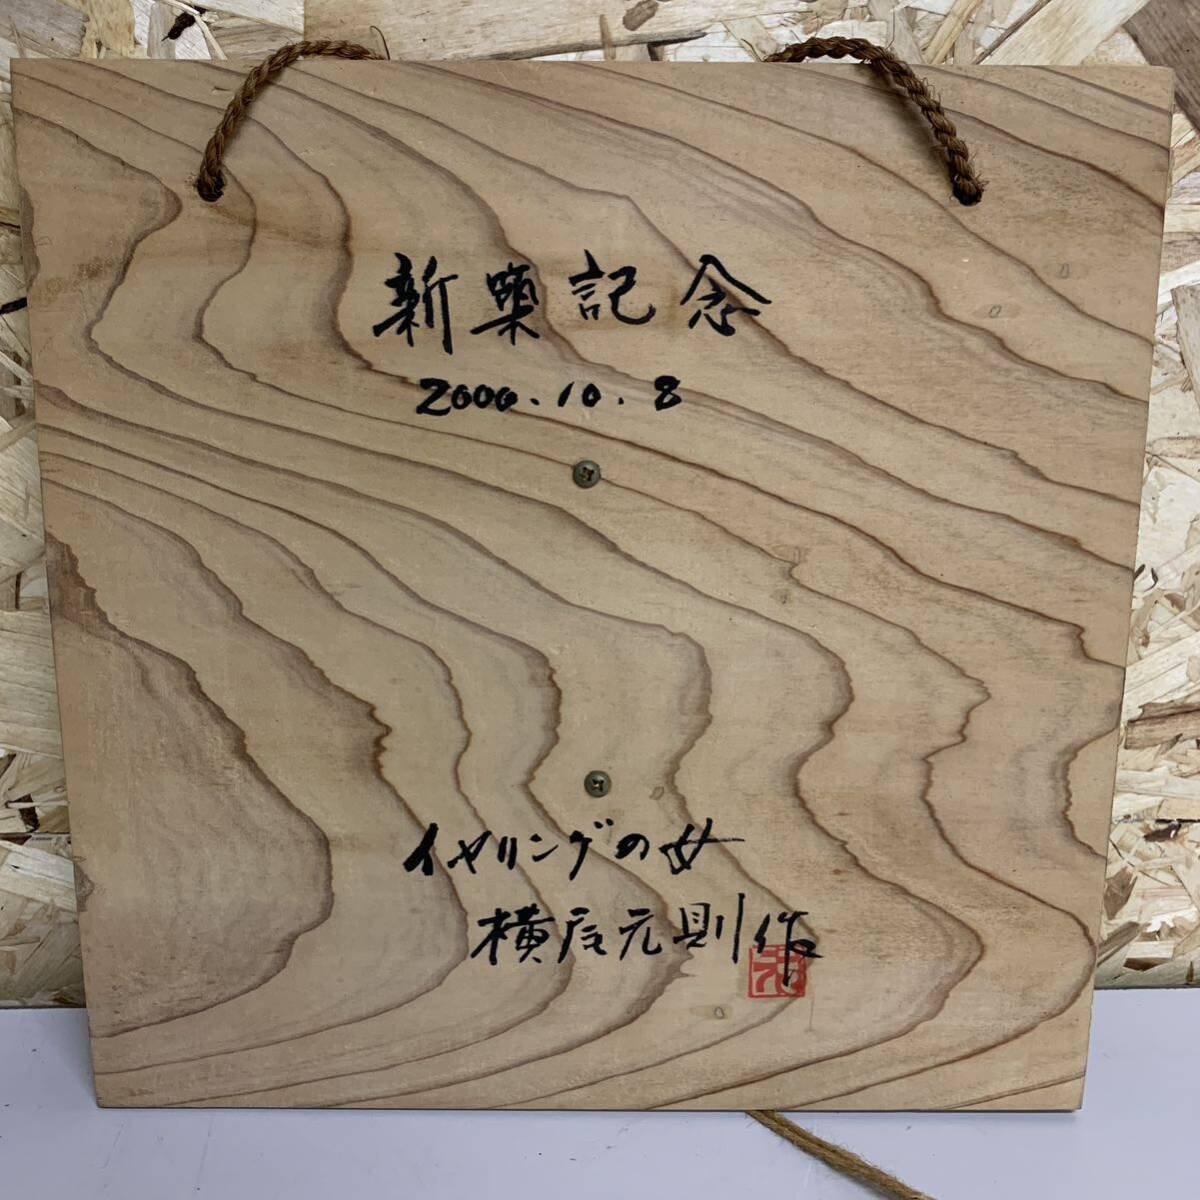 新築記念
2000.10.8
イヤリングの女
横尾元則作